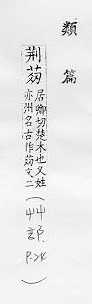 類篇
荆茘
居卿切楚木也又姓
亦州名古作茘文二
(艸部 P.24)